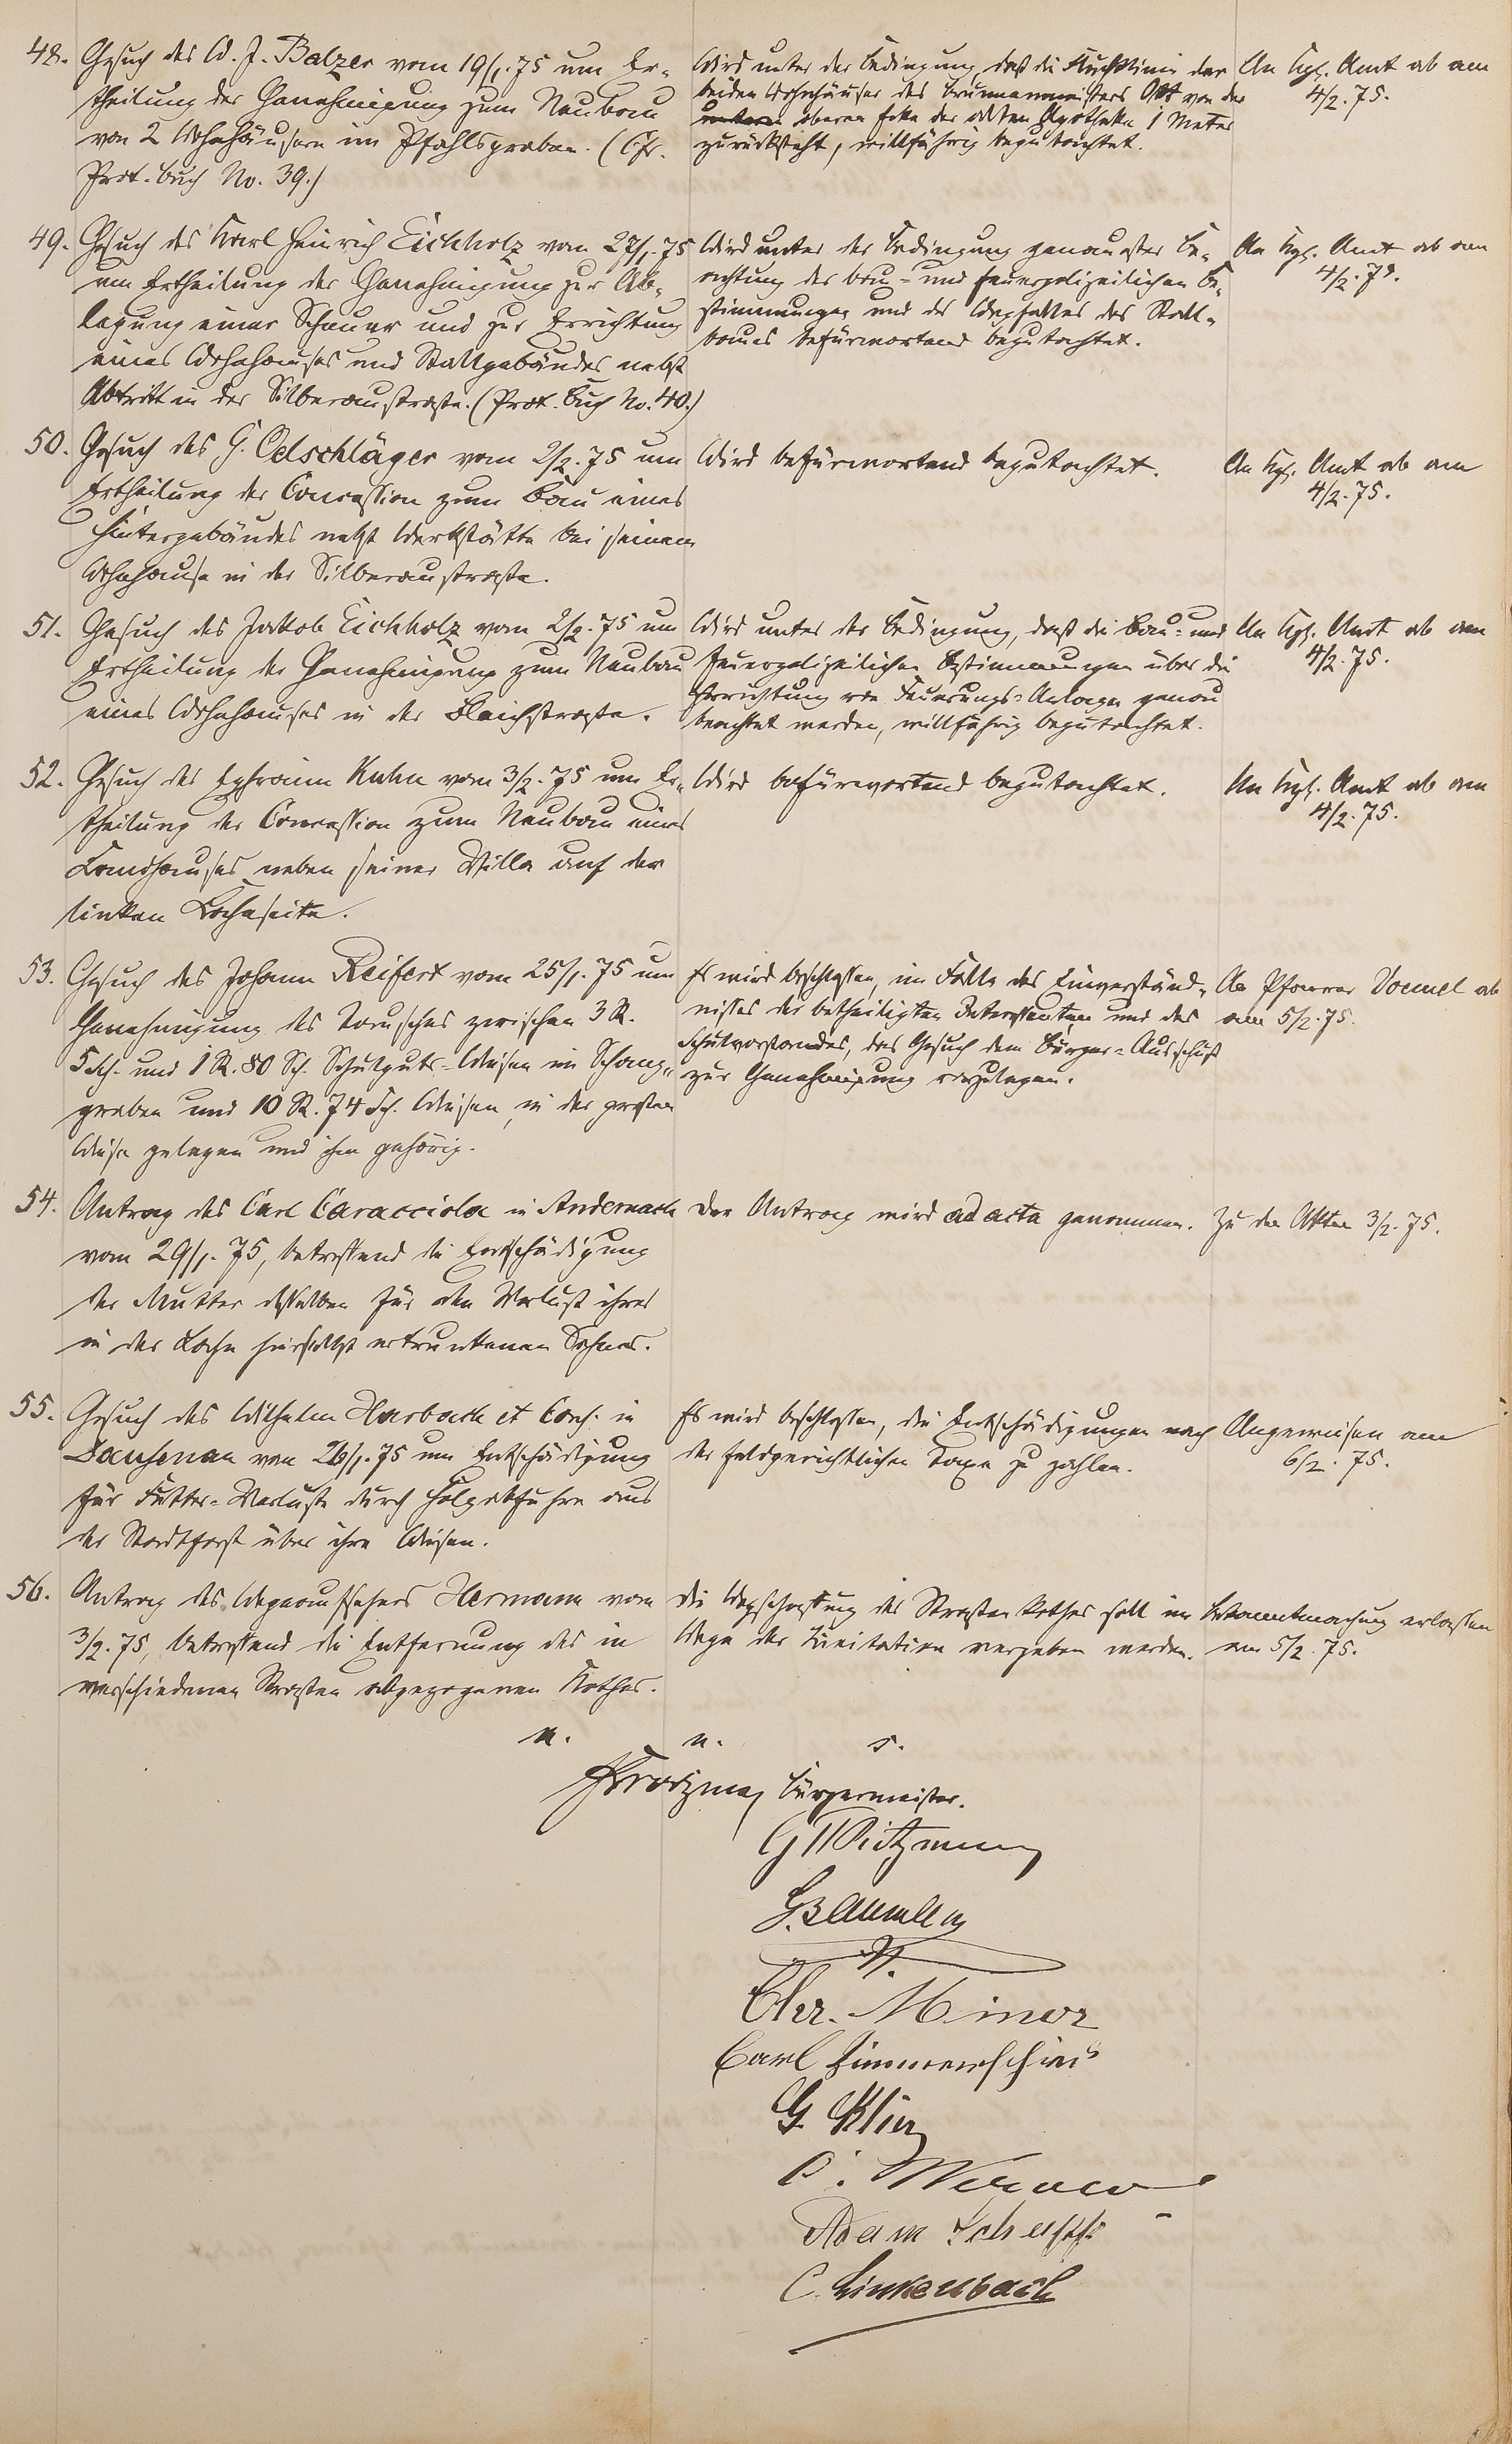 48. Gesuch des W. J. Balzer vom 19/1. 75 um Er-
theilung der Genehmigung zum Neubau
von 2 Wohnhäusern im Pfahlsgraben. (Cfr.
Prot. Buch No. 39.)
Wird unter der Bedingung, daß die Fluchtlinie der
beiden Wohnhäuser des Brunnenmeisters Ott von der
unteren oberen Ecke der alten Apotheke 1 Meter
zurücksteht, willfährig begutachtet.
An Kgl. Amt ab am
4/2. 75.
49. Gesuch des Karl Heinrich Eichholz vom 27/1. 75
um Ertheilung der Genehmigung zur Ab-
legung einer Scheuer und zur Errichtung
eines Wohnhauses und Stallgebäudes nebst
Abtritt in der Silberaustraße. (Prot. Buch No. 40.)
Wird unter der Bedingung genauester Be-
achtung der bau- und feuerpolizeilichen Be-
stimmungen und des Wegfalles des Stall-
baues befürwortend begutachtet.
An Kgl. Amt ab am
4/2. 75.
50. Gesuch des G. Oelschläger vom 2/2. 75 um
Ertheilung der Concession zum Bau eines
Hintergebäudes nebst Werkstätte bei seinem
Wohnhause in der Silberaustraße.
Wird befürwortend begutachtet.
An Kgl. Amt ab am
4/2. 75.
51. Gesuch des Jakob Eichholz vom 2/2. 75 um
Ertheilung der Genehmigung zum Neubau
eines Wohnhauses in der Bleichstraße.
Wird unter der Bedingung, daß die Bau- und
Feuerpolizeilichen Bestimmungen über die
Errichtung von Feuerungs-Anlagen genau
beachtet werden, willfährig begutachtet.
An Kgl. Amt ab am
4/2. 75.
52. Gesuch des Ephraim Kuhn vom 3/2. 75 um Er-
theilung der Concession zum Neubau eines
Landhauses neben seiner Villa auf der
linken Lahnseite.
Wird befürwortend begutachtet.
An Kgl. Amt ab am
4/2. 75.
53. Gesuch des Johann Reifert vom 25/1. 75 um
Genehmigung des Tausches zwischen 3 R.
5 Sch. und 1 R. 80 Sch. Schulguts-Wiesen im
graben und 10 R. 74 Sch. Wiesen, in der großen
Wiese gelegen und ihm gehörig.
Es wird beschlossen, im Falle des Einverständ-
nisses der betheiligten Interessenten und des
Schulvorstandes, das Gesuch dem Bürger-Ausschuß
zur Genehmigung vorzulegen.
An Pfarrer Vömel ab
am 5/2. 75.
54. Antrag des Carl Caracciola in Andernach
vom 29/1. 75, betreffend die Entschädigung
der Mutter desselben für den Verlust ihres
in der Lahn hierselbst ertrunkenen Sohnes.
Der Antrag wird ad acta genommen.
Zu den Akten 3/2. 75.
55. Gesuch des Wilhelm Harbach et Cons. in
Dausenau von 26/1. 75 um Entschädigung
für Futter-Verluste durch Holzabfuhr aus
der Stadtforst über ihre Wiesen.
Es wird beschlossen, die Entschädigungen nach
der feldgerichtlichen Taxe zu zahlen.
Angewiesen am
6/2. 75.
56. Antrag des Wegeaufsehers Hermann vom
3/2. 75, betreffend die Entfernung des in
verschiedenen Straßen abgezogenen Kothes.
Die Wegschaffung des Straßenkothes soll im
Wege der Licitation vergeben werden.
Bekanntmachung erlassen
am 5/2. 75.
n. n. s.
Bürgermeister.
Chr. Minor
Carl Zimmerschied
C. Linkenbach